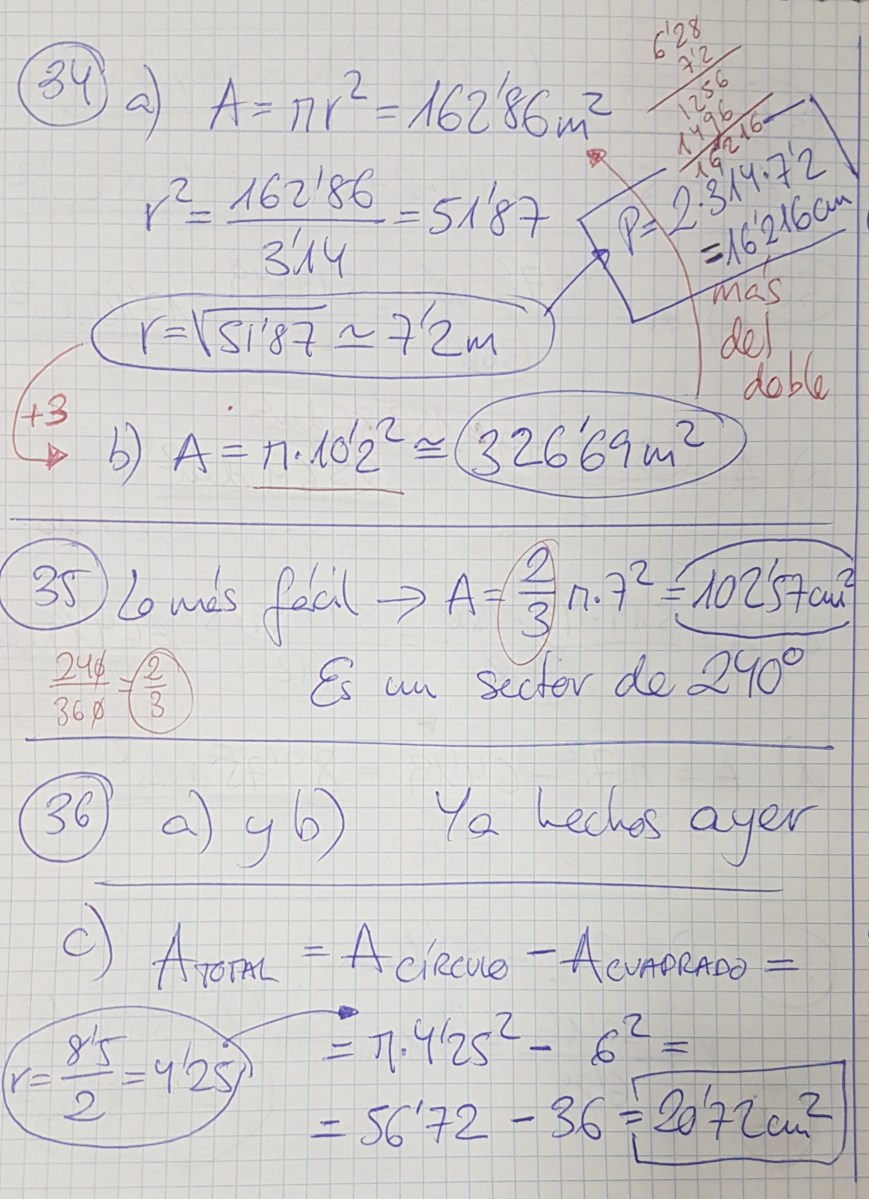 34 a) A = πr² = 162'86 m²
6'28
7'2
1256
1496
16'216
r² = 162'86 / 3'14 = 51'87
P = 2·314·7'2
= 16'216 cm
r = √51'87 ≃ 7'2 m
más
del
doble
+3
b) A = π·10'2² ≅ 326'69 m²
35 Lo más fácil → A = 2/3 π·7² = 102'57 cm²
240/360 = 2/3
Es un sector de 240º
36 a) y b) Ya hechos ayer
c) A TOTAL = A CÍRCULO − A CUADRADO =
r = 8'5/2 = 4'25
= π·4'25² − 6² =
= 56'72 − 36 = 20'72 cm²